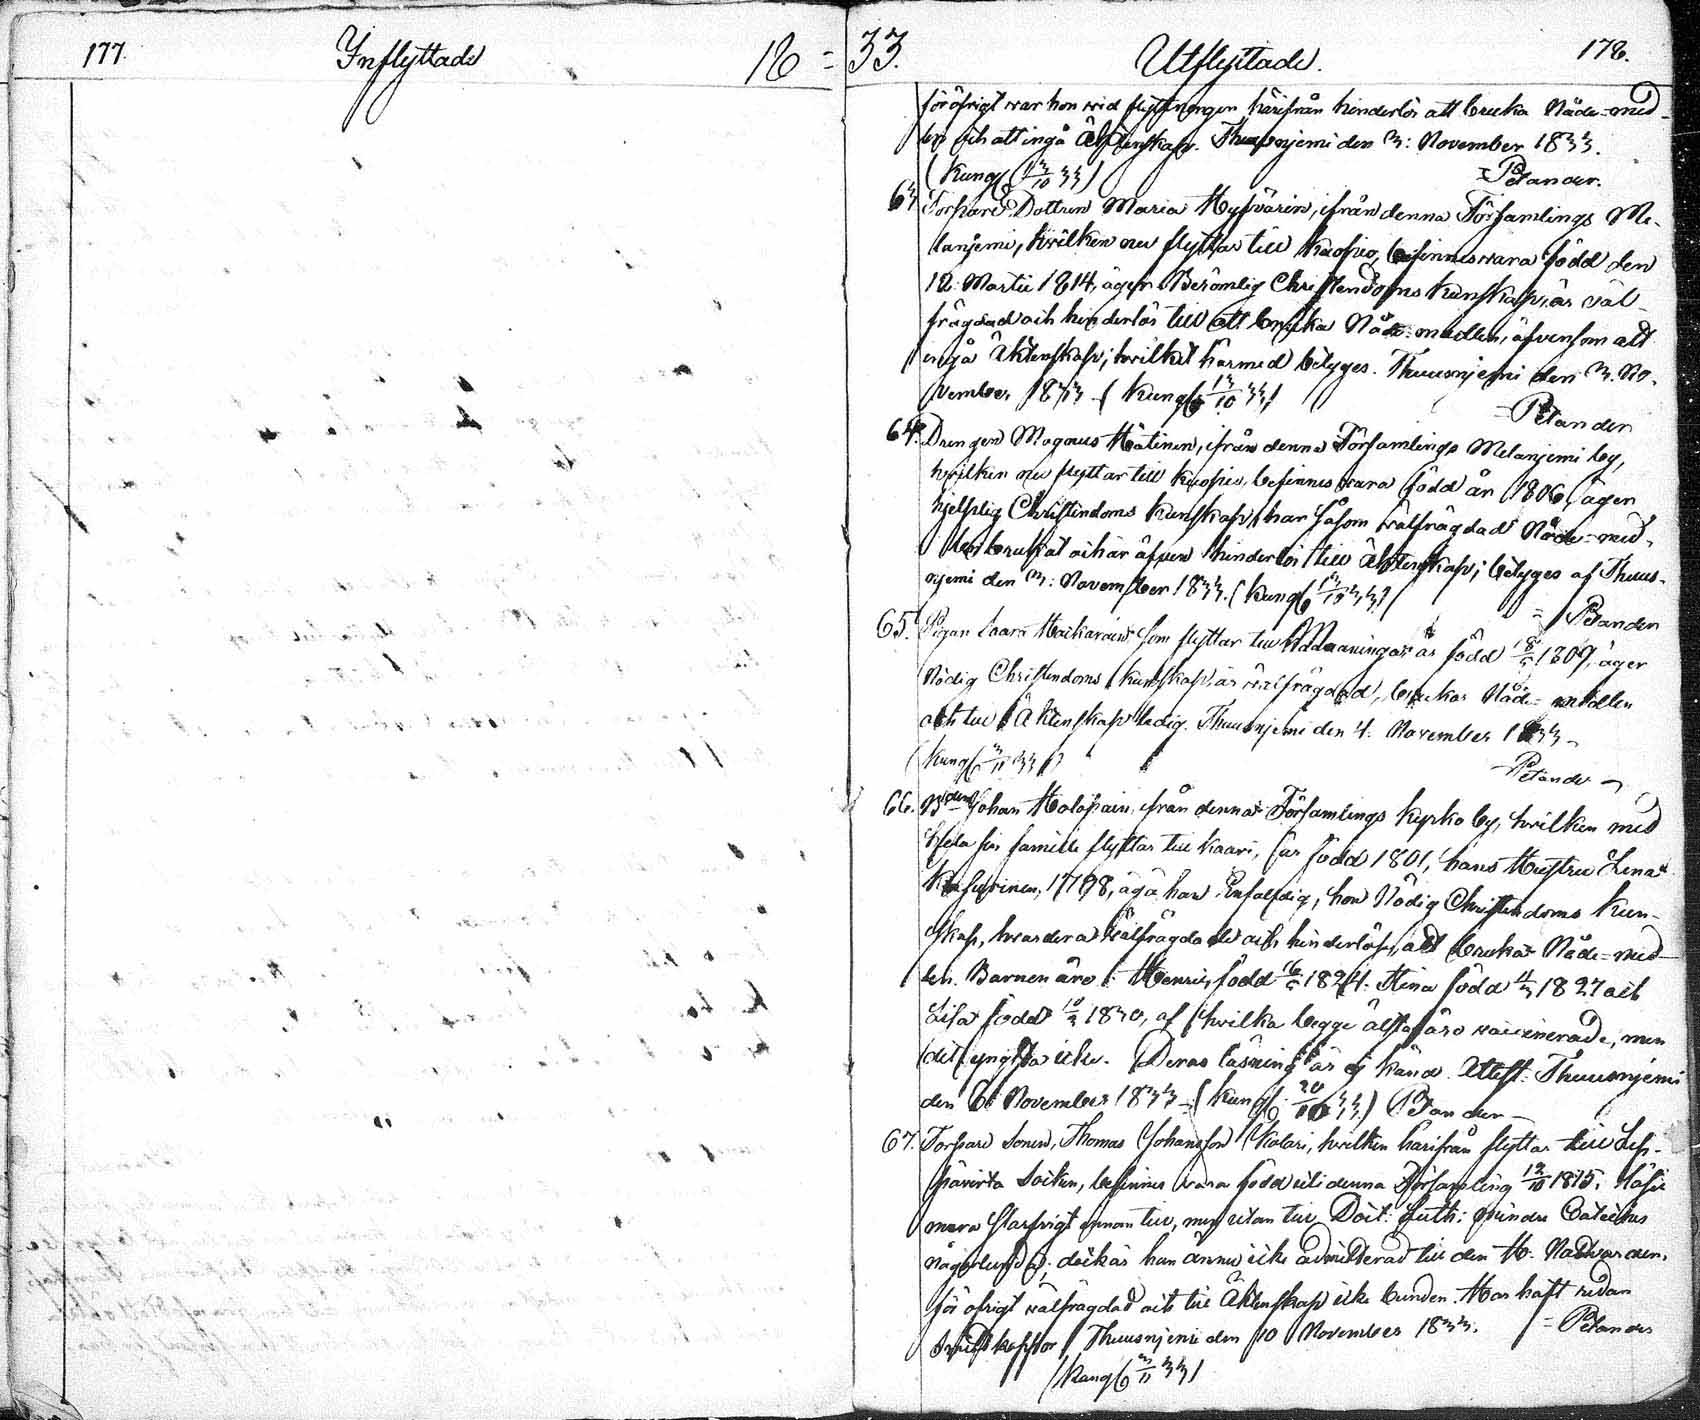 177. Inflyttade 18 =
33. Utflyttade. 178.
föröfrigt war hon wid flyttningen härifrån hinderlös att bruka Nåde-med-
len och att ingå Äktenskap. Thuusnjemi den 3: November 1833.
(Kung 13/10 33) =Petander.
63 Torpare Dottren Maria Hyfvärin, ifrån denna Församlings Me-
lanjemi, hvilken nu flyttar till Kuopio, befinnes vara född den
18 Martii 1814, äger Berömlig Christendoms kunskap, är väl-
frägdad och hinderlös till att bruka Nåde-medlen, äfvensom att
ingå Äktenskap; hvilket härmed betyges. Thuusnjemi den 3. No-
vember 1833 (Kung 13/10 33) =Petander
64. Drengen Magnus Hätinen, ifrån denna Församlings Melanjemi by,
hvilken nu flyttar till Kuopio, befinnes vara född år 1806, äger
hjelplig Christendoms kunskap, har såsom välfrägdad Nåde-med-
len brukat och är äfven hinderlös till Äktenskap; betyges af Thuus-
njemi den 3: November 1833. (Kung 13/10 33) = Petander
65. Pigan Som flyttar till är född 18/5 1809, äger
Nödig Christendoms kunskap, är välfrägdad, brukar Nåde-medlen
och till Äktenskap ledig. Thuusnjemi den 4. November 1833 -
(Kung 3/11 33) =Petander
66. Bonden Johan Holopain ifrån denna Församlings kyrko by, hvilken med
hela sin famille flyttar till Kaavi, är född 1801, hans Hustru Lena
1798, äga han Enfaldig, hon Nödig Christendoms Kun-
skap, hvardera välfrägdade och hinderlöse, att bruka Nåde-med-
len. Barnen äro: Henric född 16/5 1824. Stina född 4/3 1827 och
Lisa född 10/3 1830, af hvilka begge älsta äro vaccinerade, men
det yngsta icke. Deras läsning är ej känd. Attest. Thuusnjemi
den 6: November 1833 (Kung 20/10 33.) Petander -
67. Torpare Sonen, Thomas Johansson Kolari, hvilken härifrån flyttar till Lep-
pävirta Socken, befinnes vara född uti denna Församling 12/10 1815. Läser
innan till, men utan till Doct: Luth: mindre Cateches
någorlunda; dock är han ännu icke admitterad till den H. Nattvarden,
för öfrigt välfrägdad och till Äktenskap icke bunden. Har haft redan
Thuusnjemi den 10 November 1833. =Petander
(Kung 3/11 33)